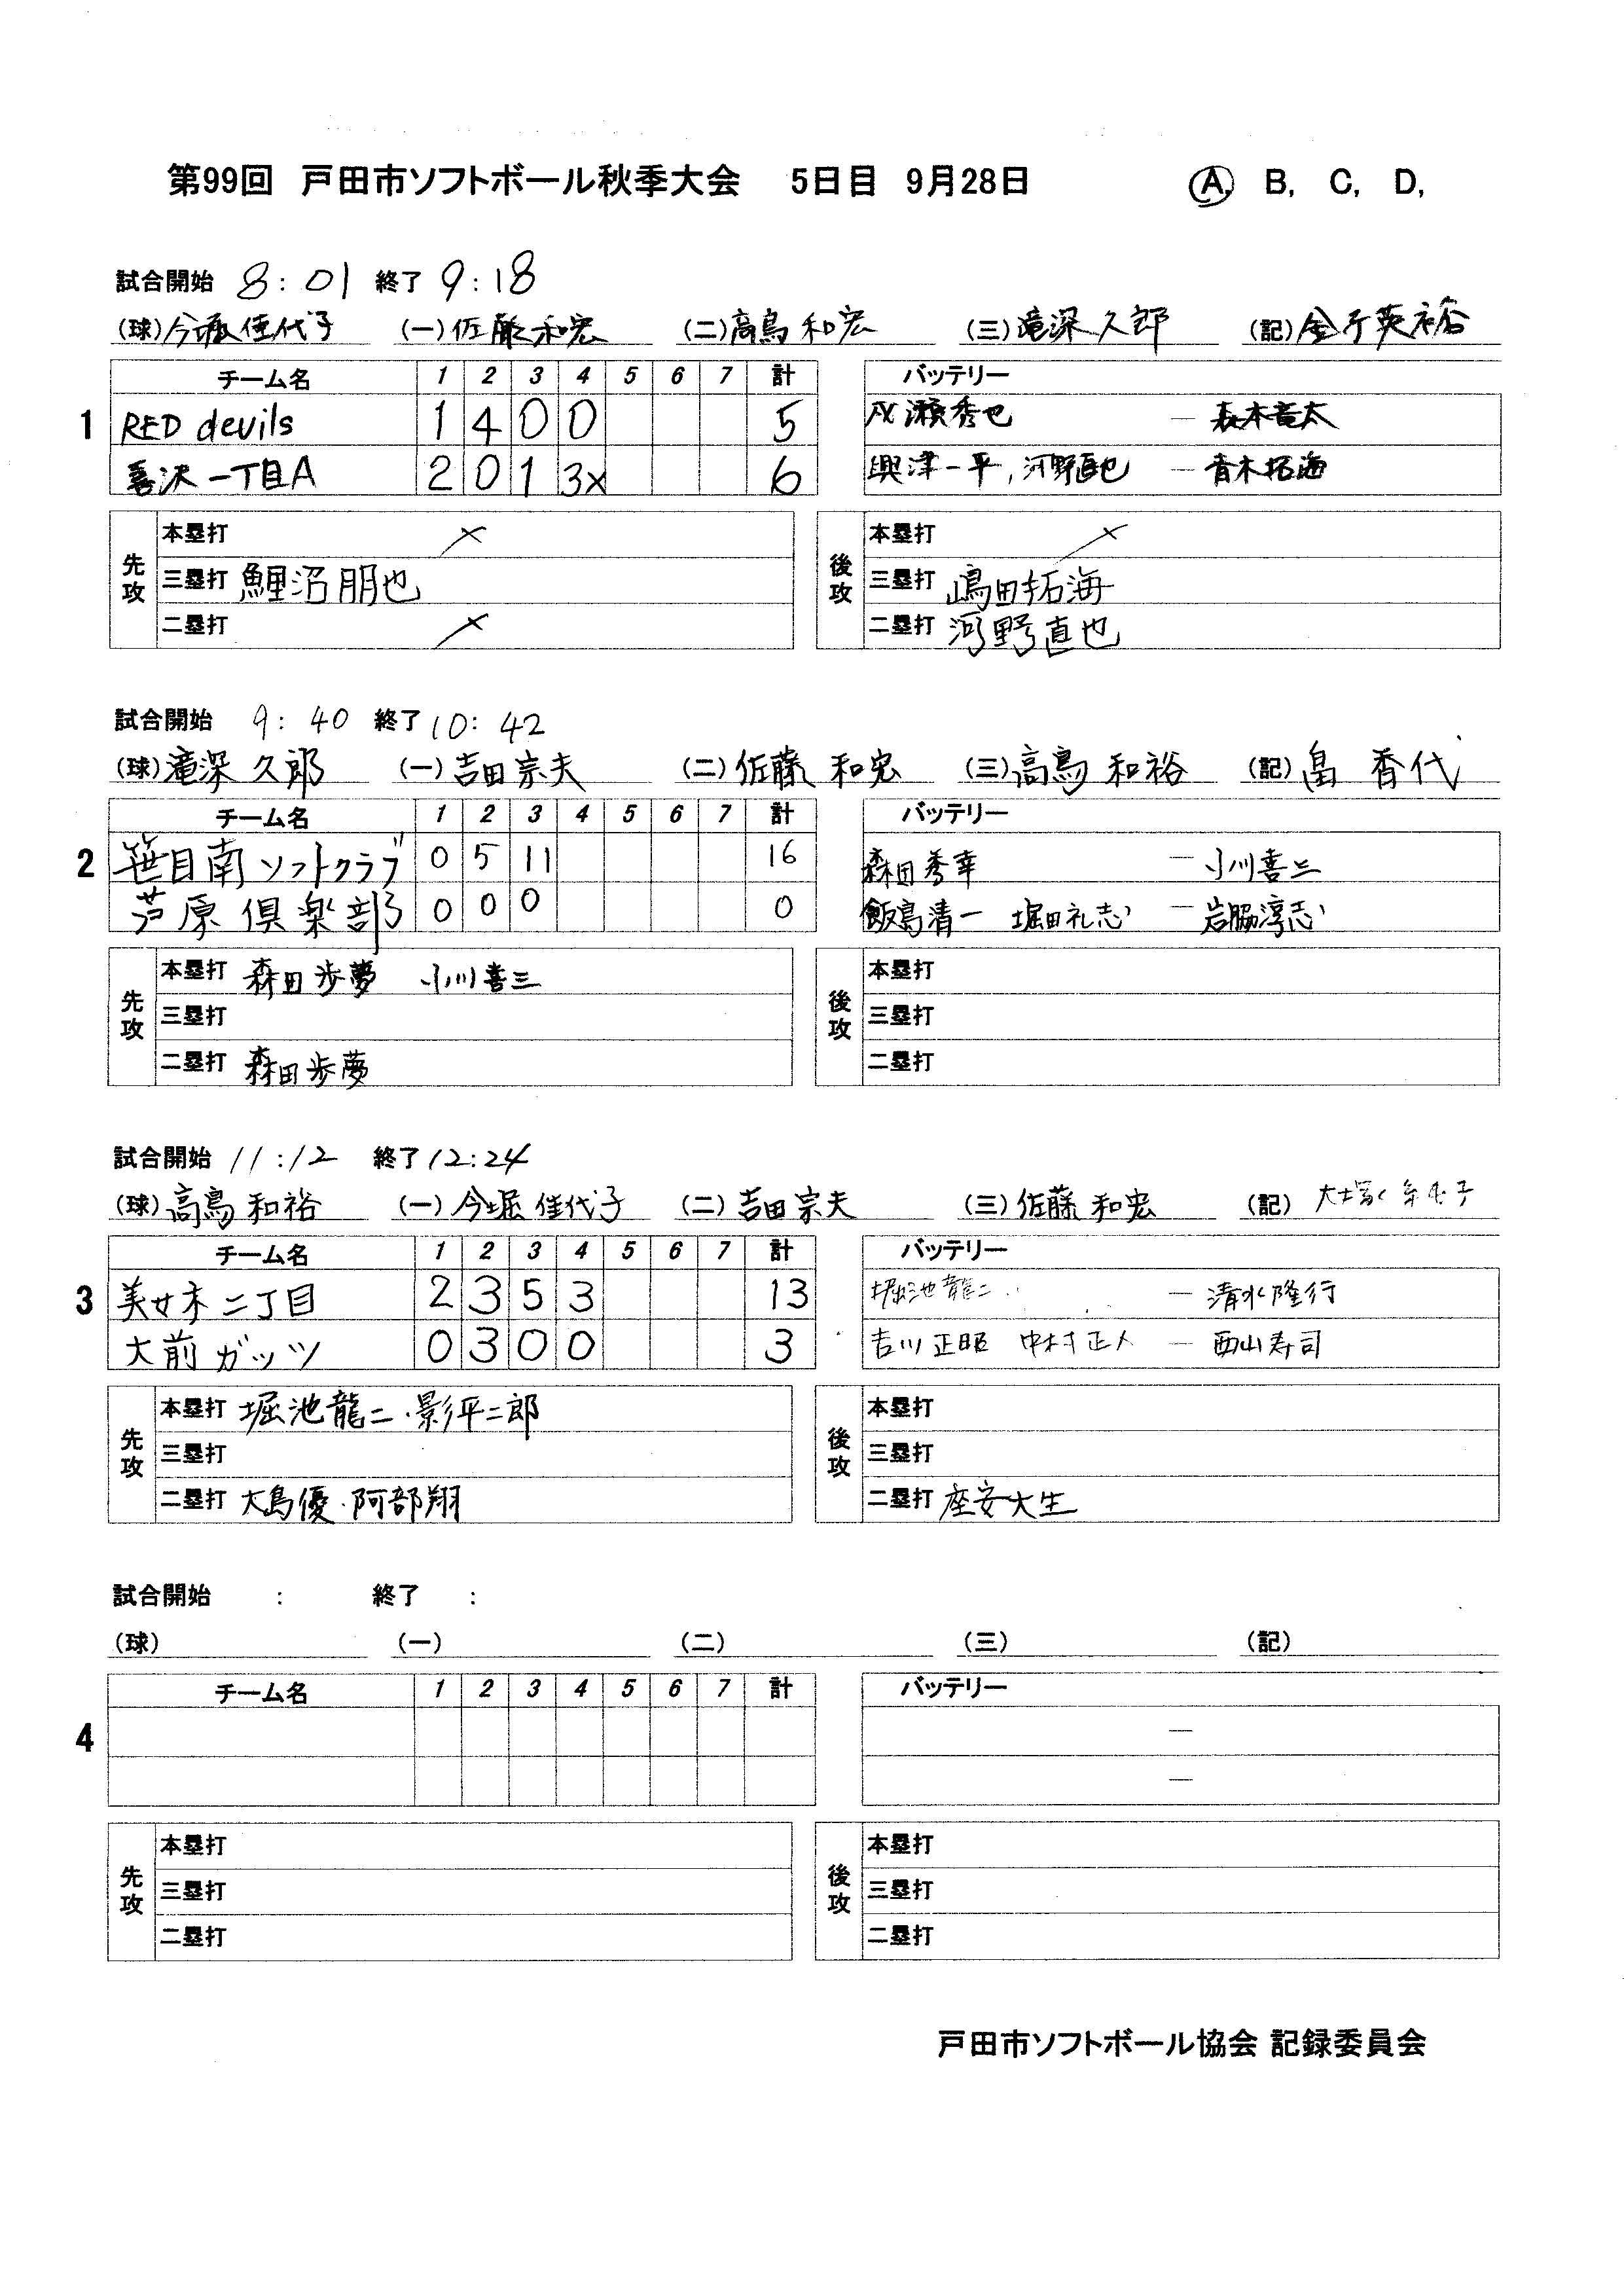 第99回 戸田市ソフトボール秋季大会 5日目 9月28日 A, B, C, D,
試合開始 8:01 終了 9:18
(球)今堀佳代子 (一)佐藤和宏 (二)高鳥和宏 (三)滝深久郎 (記)金子英裕
チーム名 1 2 3 4 5 6 7 計 バッテリー
1 RED devils 1 4 0 0 5 成瀬秀也 — 森本竜太
喜沢一丁目A 2 0 1 3x 6 興津一平,河野直也 — 青木拓海
先攻 本塁打 後攻 本塁打
三塁打 鯉沼朋也 三塁打 嶋田拓海
二塁打 二塁打 河野直也
試合開始 9:40 終了 10:42
(球)滝深久郎 (一)吉田宗夫 (二)佐藤和宏 (三)高鳥和裕 (記)畠香代
チーム名 1 2 3 4 5 6 7 計 バッテリー
2 笹目南ソフトクラブ 0 5 11 16 森田秀幸 — 小川喜三
芦原倶楽部 0 0 0 0 飯島清一 堀田礼志 — 岩脇淳志
先攻 本塁打 森田歩夢 小川喜三 後攻 本塁打
三塁打 三塁打
二塁打 森田歩夢 二塁打
試合開始 11:12 終了 12:24
(球)高鳥和裕 (一)今堀佳代子 (二)吉田宗夫 (三)佐藤和宏 (記)
チーム名 1 2 3 4 5 6 7 計 バッテリー
3 美女木二丁目 2 3 5 3 13 堀池龍二 — 清水隆行
大前ガッツ 0 3 0 0 3 吉川正昭 中村正人 — 西山寿司
先攻 本塁打 堀池龍二・影平二郎 後攻 本塁打
三塁打 三塁打
二塁打 大島優・阿部翔 二塁打 座安大生
試合開始 : 終了 :
(球) (一) (二) (三) (記)
チーム名 1 2 3 4 5 6 7 計 バッテリー
4 —
—
先攻 本塁打 後攻 本塁打
三塁打 三塁打
二塁打 二塁打
戸田市ソフトボール協会 記録委員会